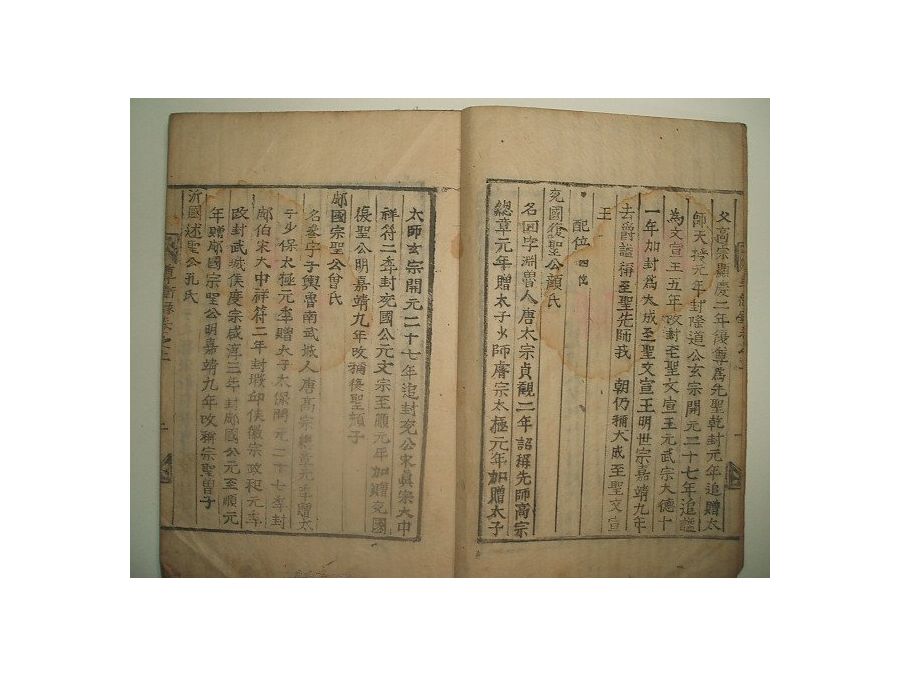 父高宗顯慶二年復尊爲先聖乾封元年追贈太
師天授元年封隆道公玄宗開元二十七年追諡
爲文宣王五年改封至聖文宣王元武宗大德十
一年加封爲大成至聖文宣王明世宗嘉靖九年
去爵諡稱至聖先師我 朝仍稱大成至聖文宣
王
配位 四位
兗國復聖公顔氏
名回字淵魯人唐太宗貞觀二年詔稱先師高宗
總章元年贈太子少師睿宗太極元年加贈太子
太師玄宗開元二十七年追封兗公宋眞宗大中
祥符二年封兗國公元文宗至順元年加贈兗國
復聖公明嘉靖九年改稱復聖顔子
郕國宗聖公曾氏
名參字子輿魯南武城人唐高宗總章元年贈太
子少保太極元年贈太子太保開元二十七年封
郕伯宋大中祥符二年封瑕邱侯徽宗政和元年
改封武城侯度宗咸淳三年封郕國公元至順元
年贈郕國宗聖公明嘉靖九年改稱宗聖曾子
沂國述聖公孔氏